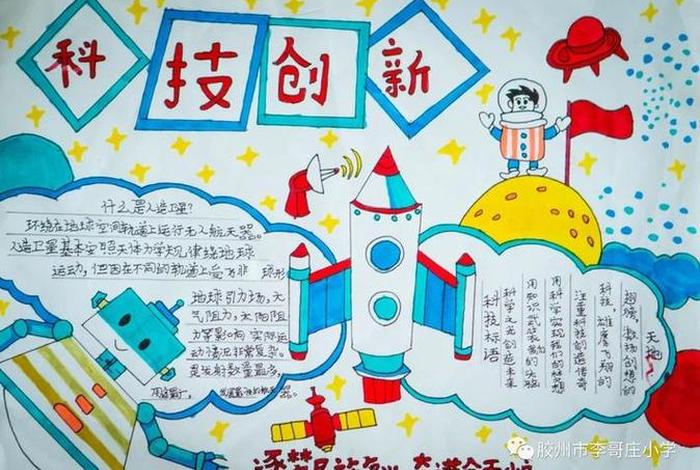 科技创新
什么是人造卫星?
环绕在地球空间轨道上运行无人航天器。
人造卫星基本安照天体力学规律绕地球
运动,但因在不同的轨道上受飞非 球形
地球引力场,大
气阻力,太阳阻
力等影响 实际运
动情况非常复杂。
是发射数量最多,
科技标语
科学之光创造未来
用知识武装
用科学实现我们的梦想
注重科技创造传奇
科技,雄鹰飞翔的
翅膀,激扬创想的
天地
胶州市李哥庄小学